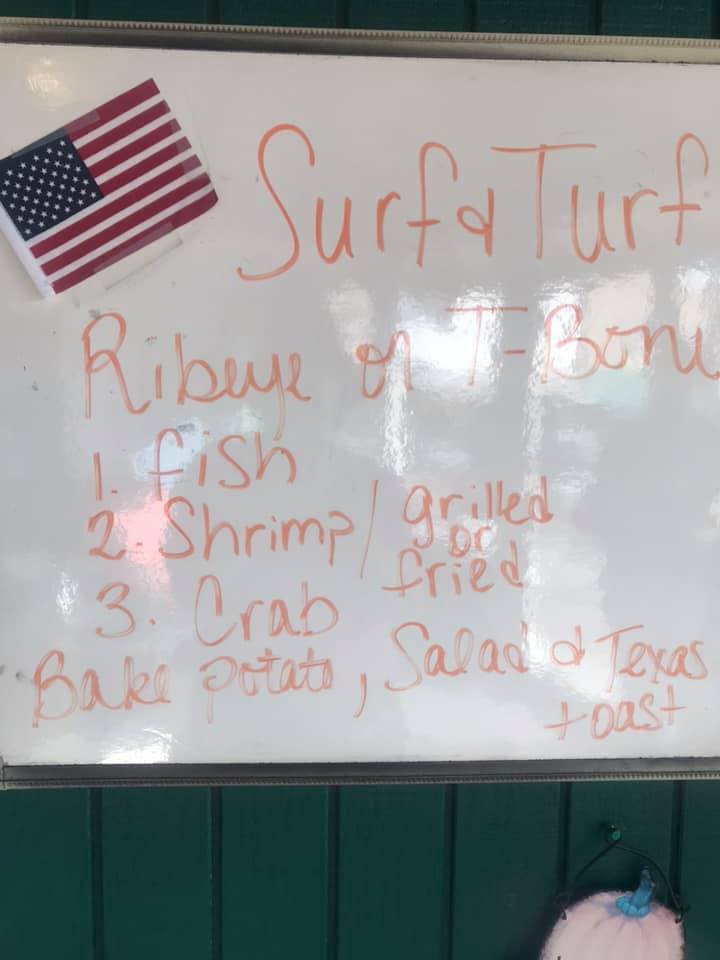 Surf & Turf
Ribeye or T-Bone
1. fish
2. Shrimp / grilled
or
fried
3. Crab
Bake potato, Salad & Texas
toast